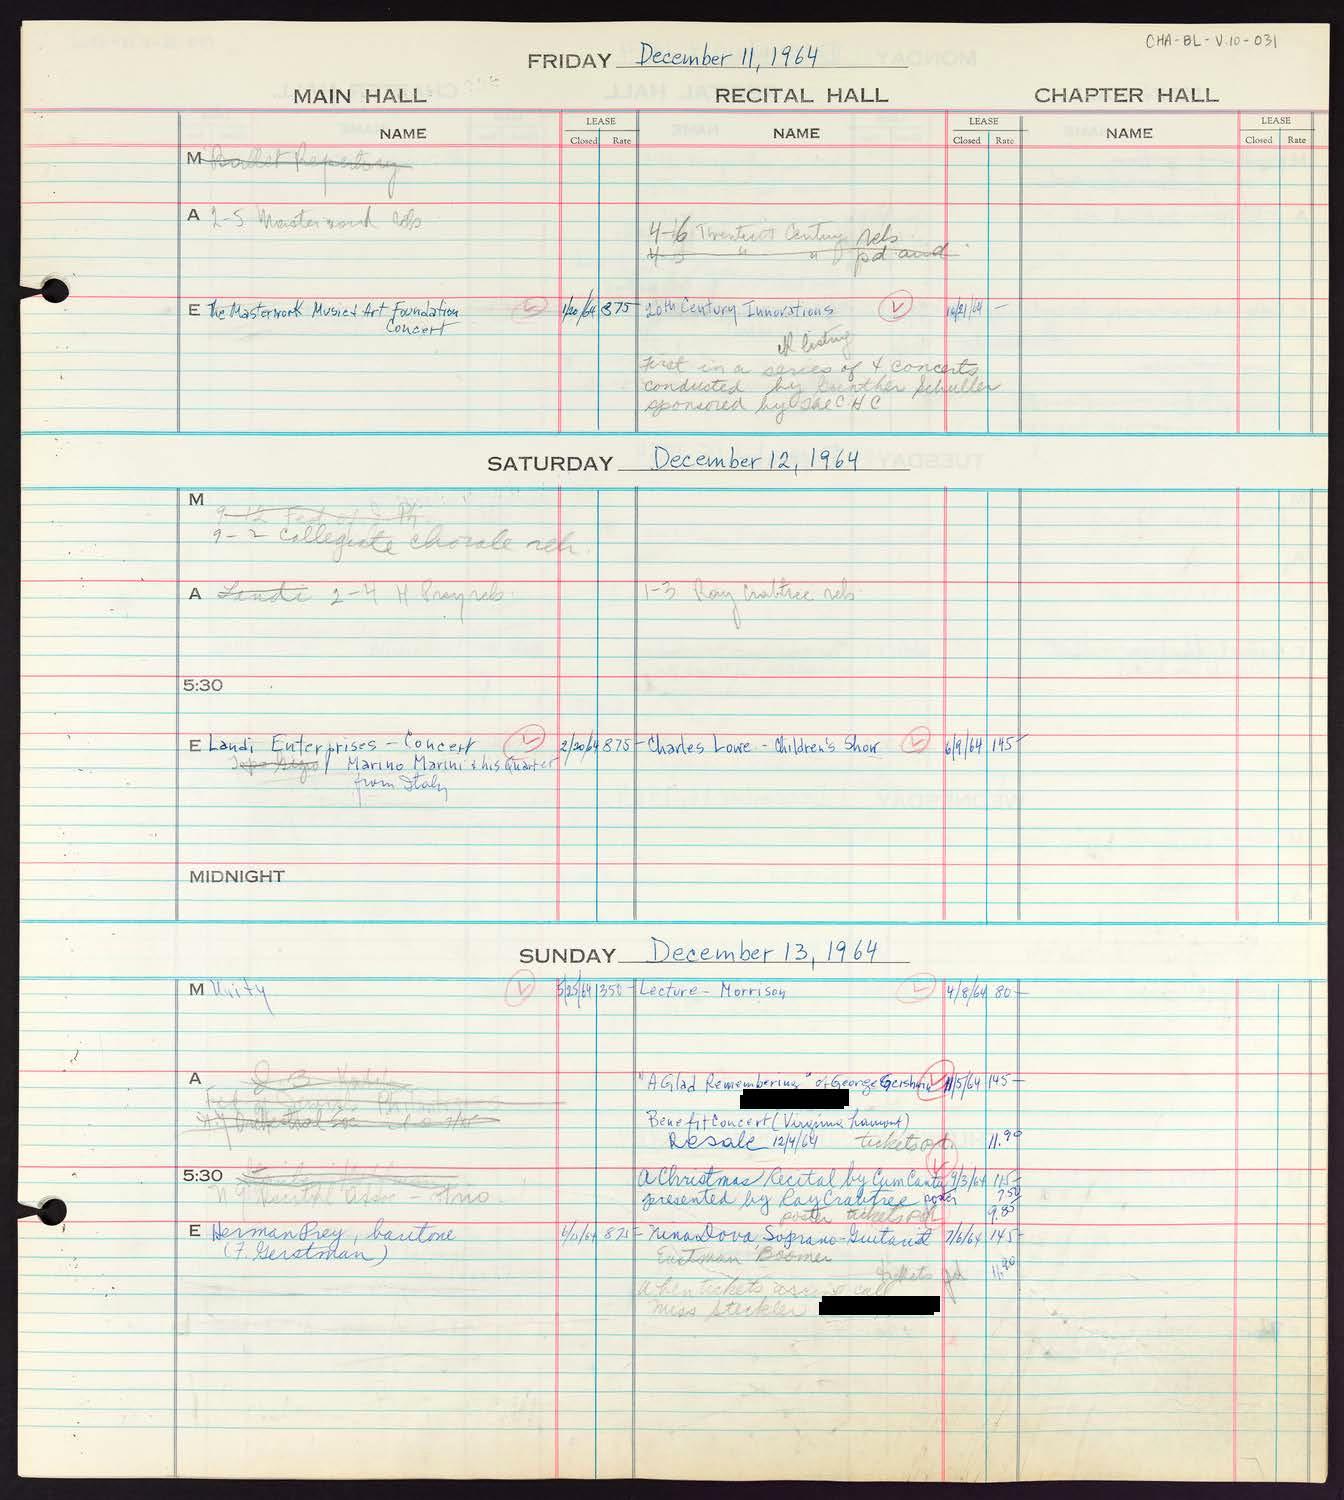 CHA-BL-V.10-031
FRIDAY December 11, 1964
MAIN HALL RECITAL HALL CHAPTER HALL
NAME LEASE Closed Rate NAME LEASE Closed Rate NAME LEASE Closed Rate
M Ballet Repertory
A 2-5 Masterwork rehs
4-6 Twentieth Century rehs
" " pd and
E The Masterwork Music & Art Foundation 1/20/64 875- 20th Century Innovations 10/21/64 -
Concert
listing
First in a series of 4 concerts
conducted by Gunther Schuller
sponsored by the CHC
SATURDAY December 12, 1964
M
9-12
9-2 Collegiate Chorale reh.
A Landi 2-4 H Prey reh. 1-3 Ray Crabtree reh
5:30
E Landi Enterprises - Concert 2/20/64 875- Charles Lowe - Children's Show 6/9/64 145-
Marino Marini & his Quartet
from Italy
MIDNIGHT
SUNDAY December 13, 1964
M Unity 5/25/64 350- Lecture - Morrison 4/8/64 80-
A "A Glad Remembering" of George Gershwin 11/5/64 145-
Benefit Concert (Virginia Lamont)
Resale 12/4/64 tickets 11.90
5:30 A Christmas Recital by Cantu 9/3/64 115-
presented by Ray Crabtree poster 7.50
poster tickets pd 9.85
E Herman Prey, baritone 875- Nina Dova Soprano-Guitarist 7/6/64 145-
(F. Gerstman) Eastman Boomer
tickets pd 11.90
When tickets call
Miss Steckler